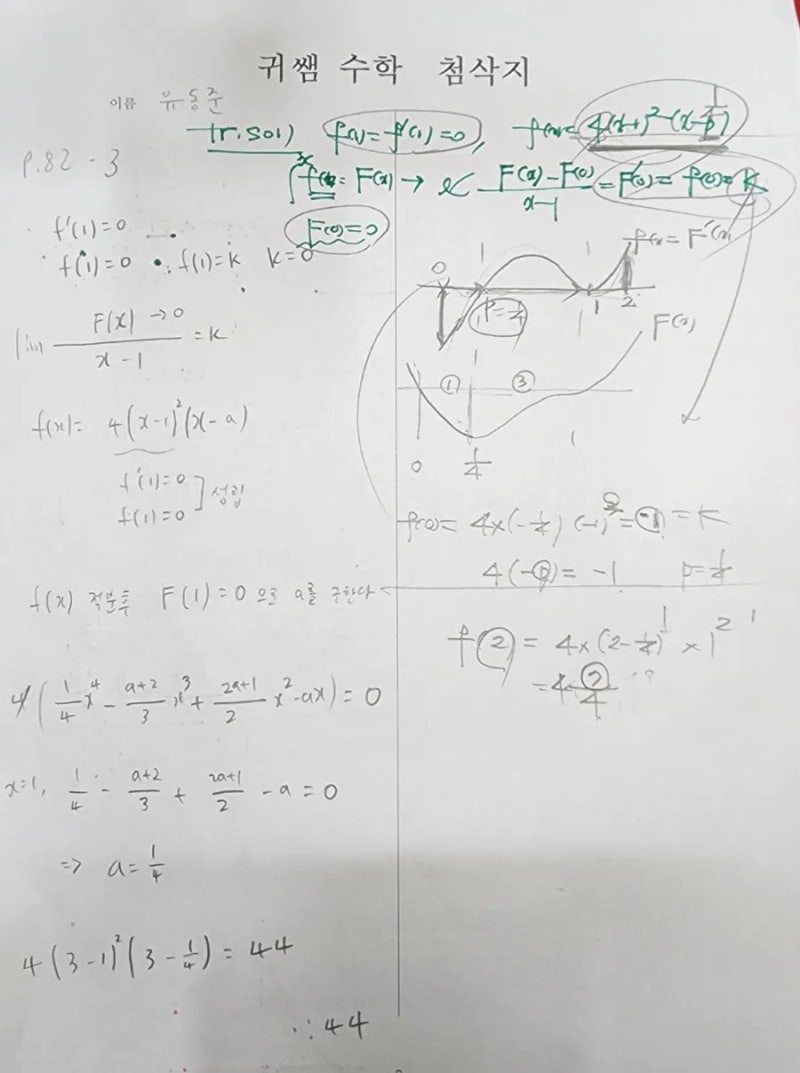 귀쌤 수학 첨삭지
이름 유동준
p.82 - 3
f'(1)=0
f(1)=0 ∴ f(1)=k k=0
lim F(x) →0 / x-1 = k
f(x)= 4(x-1)²(x-a)
f'(1)=0
f(1)=0 ] 성립
f(x) 적분후 F(1)=0 으로 a를 구한다
4(1/4 x⁴ - a+2/3 x³ + 2a+1/2 x² - ax) = 0
x=1, 1/4 - a+2/3 + 2a+1/2 - a = 0
=> a= 1/4
4(3-1)²(3-1/4) = 44
∴ 44
Tr.Sol) f(1)=f'(1)=0, f(x)= 4(x-1)²(x-p)
= F(x) → F(x)-F(0) / x-1 = F'(0)= f(0)= k
F(0)=0
f(x)=F'(x)
0
P=1/4
1 2
F(x)
① ③
0 1/4 1
f(0)= 4×(-1/4)(-1)² = -1 = k
4(-p)= -1 p=1/4
f(2) = 4×(2-1/4)¹ × 1²
= 4· 7/4